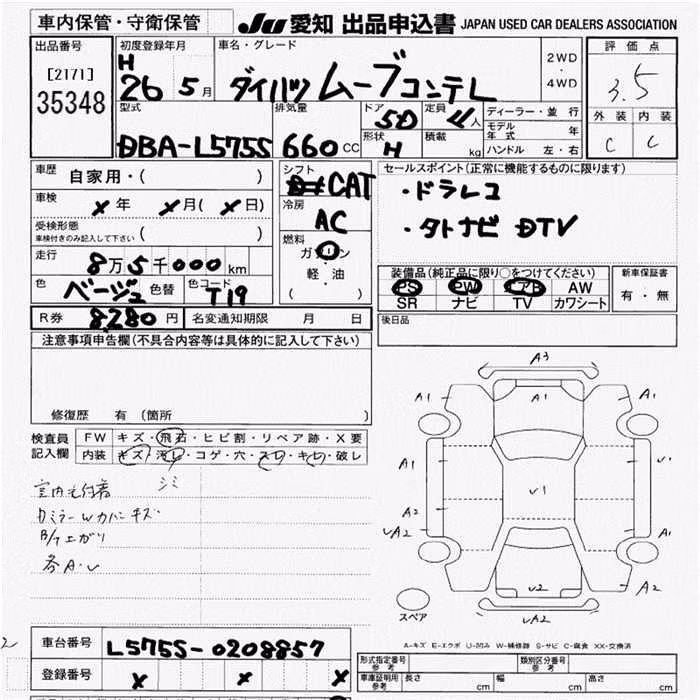 車内保管・守衛保管
Ju 愛知 出品申込書 JAPAN USED CAR DEALERS ASSOCIATION
出品番号
[2171]
35348
初度登録年月
H
26 5 月
車名・グレード
ダイハツ ムーブコンテL
2WD
・
4WD
評価点
3.5
外装 内装
C C
型式
DBA-L575S
排気量
660 CC
ドア
5D
定員
4人
形状
H
積載
kg
ディーラー・並行
モデル年式 年
ハンドル 左・右
車歴 自家用・( )
車検 ✗ 年 ✗ 月( ✗ 日)
受検形態
車検付きのみ記入して下さい ( )
走行
8万5千000km
色 ベージュ 色替 色コード T19
R券 8,280 円 名変通知期限 月 日
シフト
CAT
冷房
AC
燃料
ガソリン
・
軽・油
( )
セールスポイント(正常に機能するものに限ります)
・ドラレコ
・タトナビ DTV
装備品(純正品に限り○をつけてください)
PS PW エアB AW
SR ナビ TV カワシート
新車保証書
有・無
後日品
注意事項申告欄(不具合内容等は具体的に記入して下さい)
修復歴 有(箇所 )
検査員
記入欄
FW キズ・飛石・ヒビ割・リペア跡・X要
内装 キズ・汚レ・コゲ・穴・スレ・キレ・破レ
シミ
各A・U
A3
A1 A1 A1
A1 U1 U1
A2 A1
UA2
U2 A2
UA2
スペア
A-キズ E-エクボ U-凹み W-補修跡 S-サビ C-腐食 XX-交換済
車台番号 L575S-0208857
登録番号 ✗ ✗ ✗
形式指定番号
参考
類別区分番号
参考
車庫証明用
参考
長さ cm 幅 cm 高さ cm